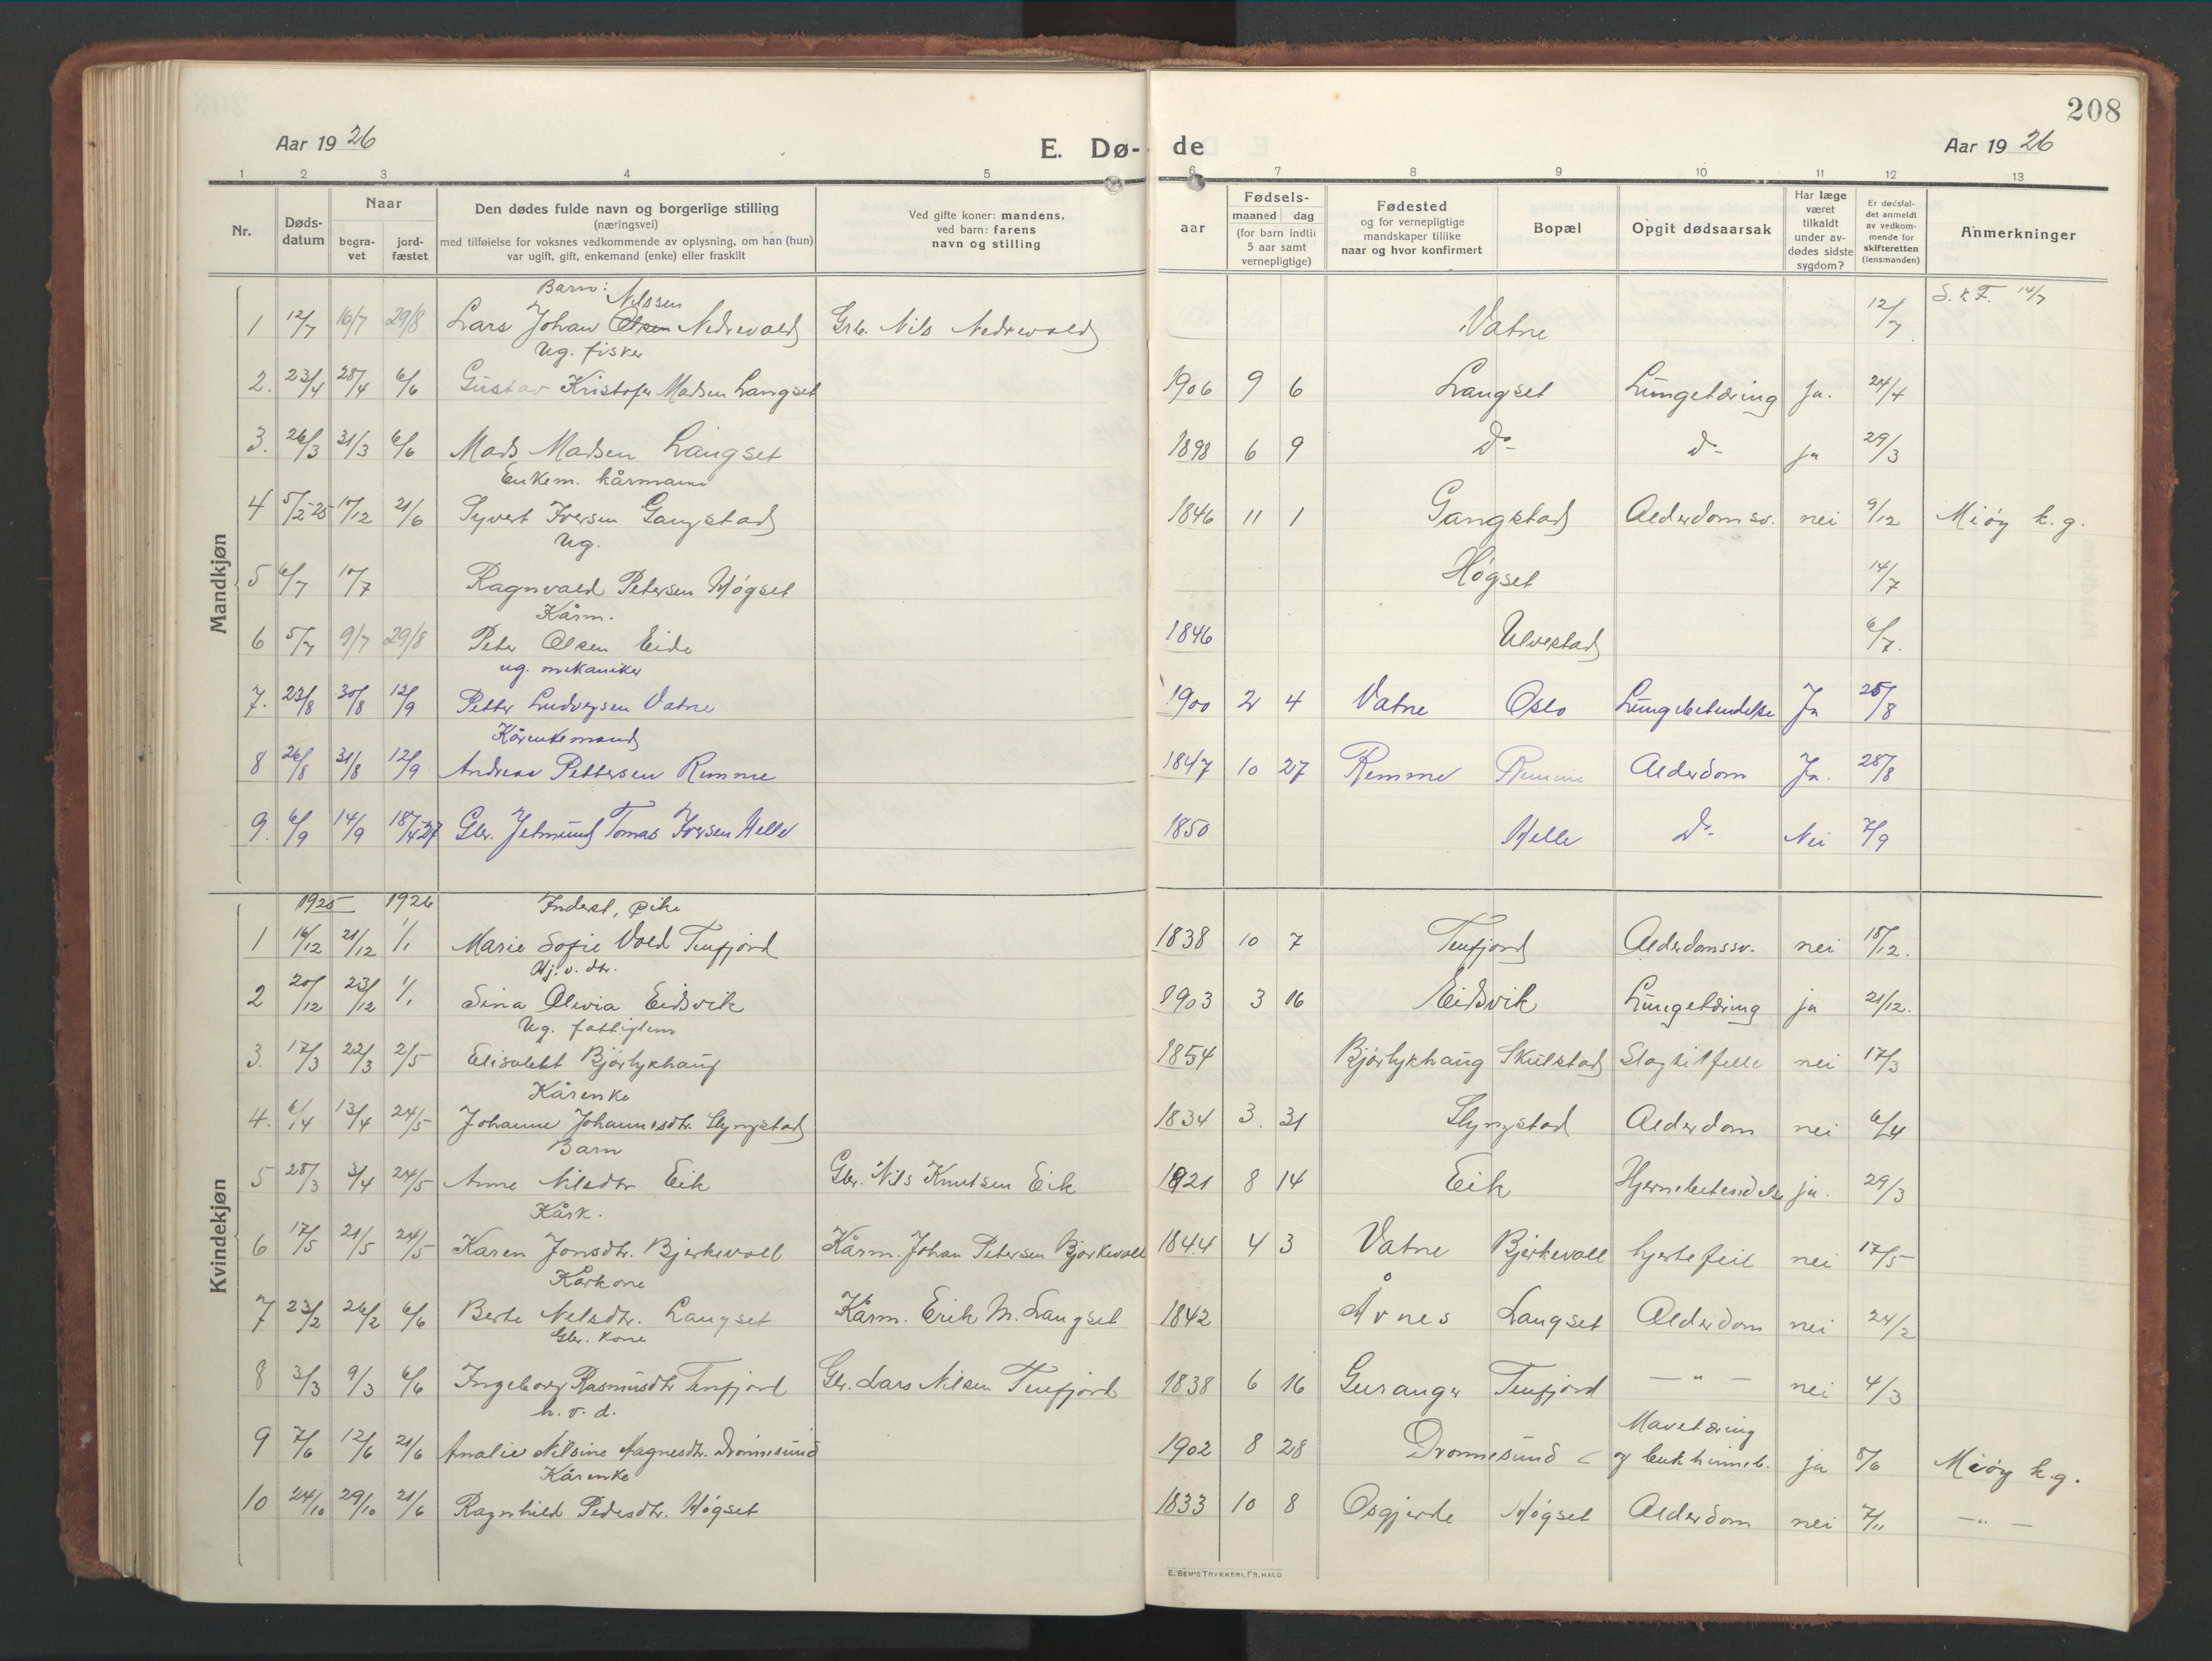 208
Aar 1926 E. Dø- de Aar 1926
1 2 3 4 5 6 7 8 9 10 11 12 13
Nr.
Døds-
datum
Naar
begra-
vet
jord-
fæstet
Den dødes fulde navn og borgerlige stilling
(næringsvei)
med tilføielse for voksnes vedkommende av oplysning, om han (hun)
var ugift, gift, enkemand (enke) eller fraskilt
Ved gifte koner: mandens,
ved barn: farens
navn og stilling
aar
Fødsels-
maaned dag
(for barn indtil
5 aar samt
vernepligtige)
Fødested
og for vernepligtige
mandskaper tillike
naar og hvor konfirmert
Bopæl
Opgit dødsaarsak
Har læge
været
tilkaldt
under av-
dødes sidste
sygdom?
Er dødsfal-
det anmeldt
av vedkom-
mende for
skifteretten
(lensmanden)
Anmerkninger
Mandkjøn
Barn: Nilssen
1 12/7 16/7 29/8 Lars Johan Olsen Nedrevold Grb. Nils Nedrevold Vatne 12/7 S. k F. 14/7
Ug. fisker
2. 23/4 28/4 6/6 Gustav Kristofer Madsen Langset 1906 9 6 Langset Lungetæring ja. 24/4
3. 26/3 31/3 6/6 Mads Madsen Langset 1898 6 9 Do- Do- ja 29/3
Enkem. kårmann
4 5/12-25 10/12 21/6 Syvert Iversen Gangstad 1846 11 1 Gangstad Alderdomsv. nei 9/12 Miøy k.g.
Ug.
5 6/7 10/7 Ragnvald Petersen Høgset Høgset 14/7
Kårm.
6 5/7 9/7 29/8 Peter Olsen Eide 1846 Ulvestad 6/7.
ug. mekaniker
7. 23/8 30/8 12/9 Petter Ludvigsen Vatne 1900 2 4 Vatne Oslo Lungebetendelse Ja 25/8
Kårenkemand
8 26/8 31/8 12/9 Andreas Pettersen Remme 1847 10 27 Remme Remme Alderdom Ja. 28/8
9. 6/9 14/9 18/4-27 Gbr. Jetmund Tomas Iversen Helle 1850 Helle Do- Nei 7/9
Kvindekjøn
1925 1926 Inderst, pike
1 16/12 21/12 1/1 Marie Sofie Vold Tenfjord 1838 10 7 Tenfjord Alderdomssv. nei 18/12.
Hj. v. dtr.
2 20/12 23/12 1/1 Sina Olivia Eidsvik 1903 3 16 Eidsvik Lungetæring ja 21/12.
Ug. fattiglem
3. 17/3 22/3 2/5 Elisabet Bjørlykhaug 1854 Bjørlykhaug Skulstad Slagtilfelle nei 17/3
Kårenke
4. 6/4 13/4 24/5 Johanne Johannesdtr. Slyngstad 1834 3. 31 Slyngstad Alderdom nei 6/4
Barn
5 28/3 3/4 24/5 Anne Nilsdtr Eik Gbr. Nils Knutsen Eik 1921 8 14 Eik Hjernebetendelse ja. 29/3
Kårk.
6 17/5 21/5 24/5 Karen Jonsdtr. Bjerkevoll Kårm. Johan Petersen Bjørkevoll 1844 4 3 Vatne Bjerkevoll hjertefeil nei 17/5
Kårkone
7 23/2 26/2 6/6 Berte Nilsdtr. Langset Kårm. Erik M. Langset 1842 Årnes Langset Alderdom nei 24/2
Gbr. kone
8 3/3 9/3 6/6 Ingeborg Rasmusdtr Tenfjord Gbr. Lars Nilsen Tenfjord 1838 6 16 Geiranger Tenfjord — " — nei 4/3
h. v. d. Mavetæring
9 7/6 12/6 21/6 Amalie Nilsine Magnesdtr. Dronnesund 1902 8 28 Dronnesund og bukhinneb. ja 8/6 Miøy k.g.
Kårenke
10 24/10 29/10 21/6 Ragnhild Pedersdtr. Høgset 1833 10 8 Osgjerde Høgset Alderdom nei 7/11 — " —
E. SEM'S TRYKKERI, FR. HALD